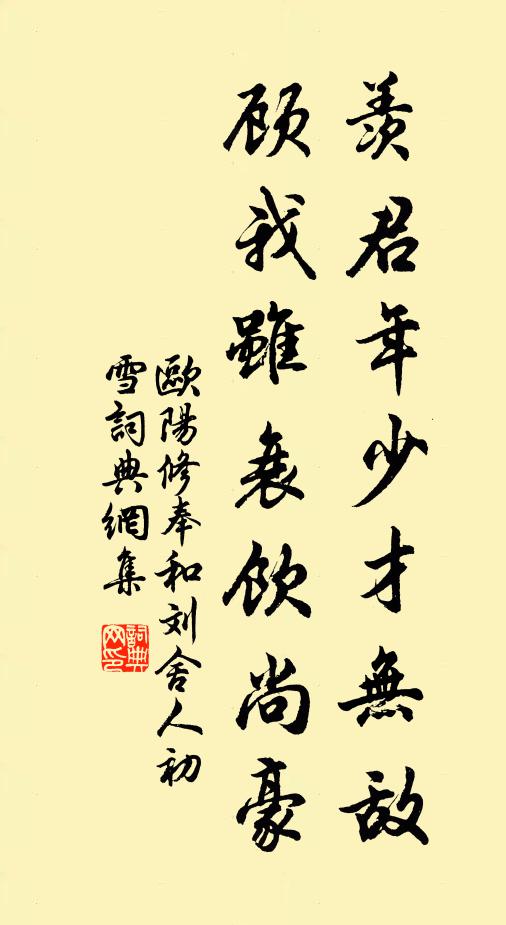 羨君年少才無敵
顧我雖衰飲尚豪
歐陽修奉和刘舍人初
雪詞典網集
詞典
网印